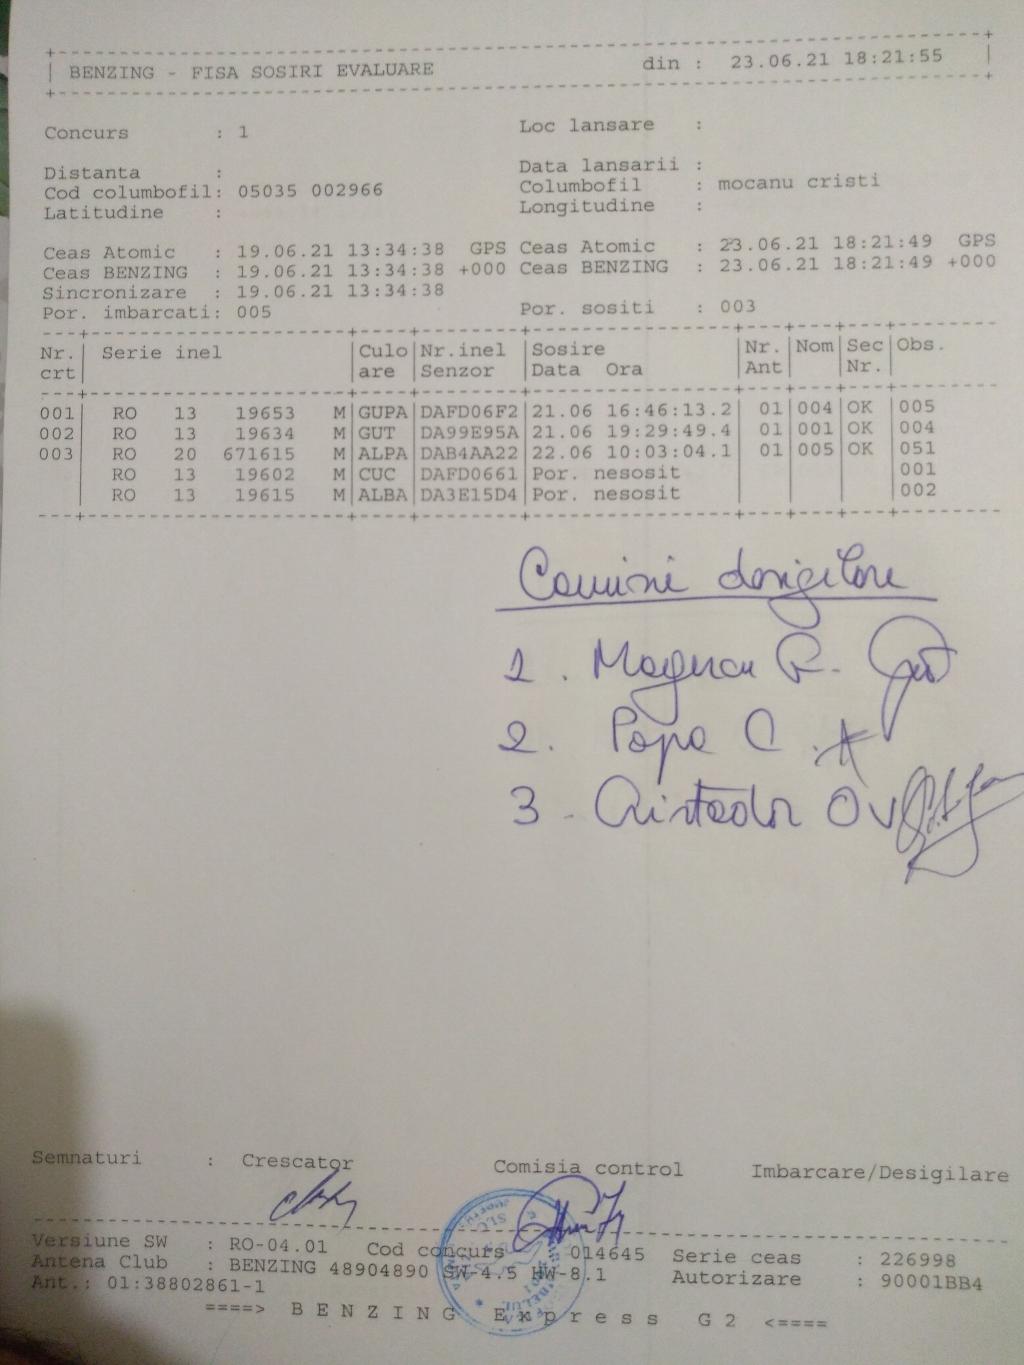 BENZING - FISA SOSIRI EVALUARE din : 23.06.21 18:21:55
Concurs : 1 Loc lansare :
Distanta : Data lansarii :
Cod columbofil: 05035 002966 Columbofil : mocanu cristi
Latitudine : Longitudine :
Ceas Atomic : 19.06.21 13:34:38 GPS Ceas Atomic : 23.06.21 18:21:49 GPS
Ceas BENZING : 19.06.21 13:34:38 +000 Ceas BENZING : 23.06.21 18:21:49 +000
Sincronizare : 19.06.21 13:34:38
Por. imbarcati: 005 Por. sositi : 003
Nr. Serie inel Culo Nr.inel Sosire Nr. Nom Sec Obs.
crt are Senzor Data Ora Ant Nr.
001 RO 13 19653 M GUPA DAFD06F2 21.06 16:46:13.2 01 004 OK 005
002 RO 13 19634 M GUT DA99E95A 21.06 19:29:49.4 01 001 OK 004
003 RO 20 671615 M ALPA DAB4AA22 22.06 10:03:04.1 01 005 OK 051
RO 13 19602 M CUC DAFD0661 Por. nesosit 001
RO 13 19615 M ALBA DA3E15D4 Por. nesosit 002
1.
2. Popa C
3 - Ov
Semnaturi : Crescator Comisia control Imbarcare/Desigilare
Versiune SW : RO-04.01 Cod concurs : 014645 Serie ceas : 226998
Antena Club : BENZING 48904890 SW-4.5 HW-8.1 Autorizare : 90001BB4
Ant.: 01:38802861-1
====> BENZING Express G2 <====